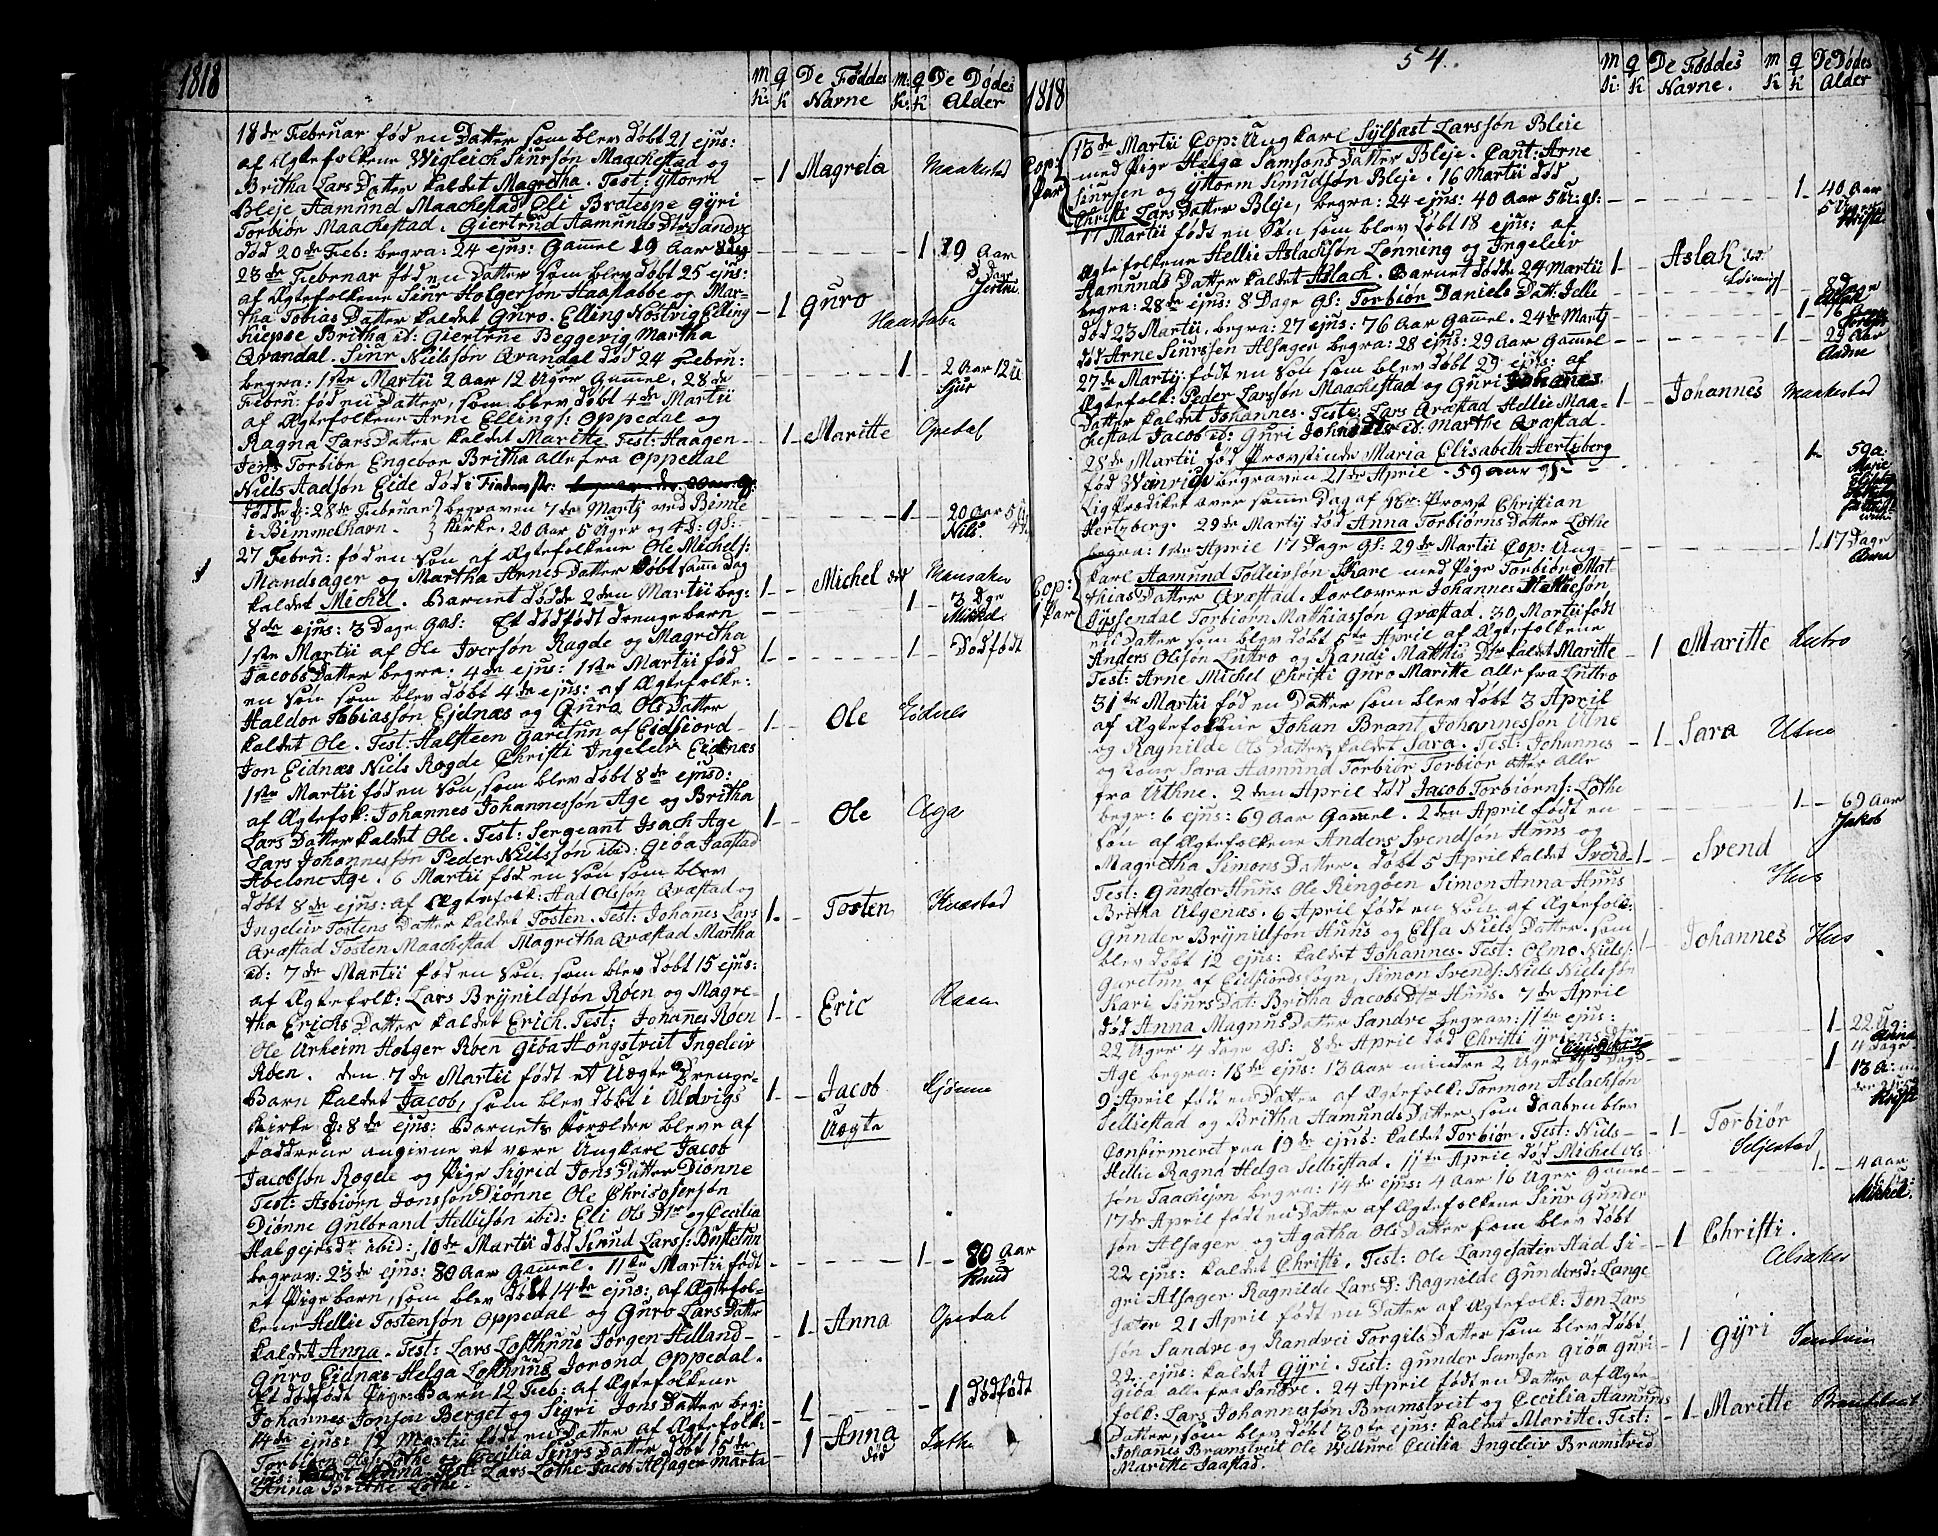 1818
m k: q k De Føddes Navne m: k: q k De Dødes Alder
18de Februar fød en Datter som blev døbt 21 ejus:
af Ægtefolkene Wigleich Siursøn Maachestad og
Britha Lars Datter kaldet Magretha. Test: Gttorm
Bleje Aamund Maachestad Eli Brotespe Gÿri
Torbiør Maachestad. Giertrud Aamunds Dtr Sandve
død 20de Feb: begra: 24 ejus: Gamel 19 Aar
23de Februar fød en Datter som blev døbt 25 ejus:
af Ægtefolkene Siur Holgersøn Haastabbe og Mar-
tha Tobias Datter kaldet Guro. Elling Nostvig Elling
Kiepse Britha id: Giertrue Beggevig Martha
Qvandal. Siur Nielsøn Qvandal død 24 Febru:
begra: 1ste Martii 2 Aar 12 Uger Gamel. 28de
Febru: fød en Datter, som blev døbt 4de Martii
af Ægtefolkene Arne Ellings: Oppedal og
Ragna Lars Datter kaldet Maritte Test: Haagen
Jens Torbiør Engebor Britha alle fra Oppedal
Niels Aadsøn Eide død i
døde d: 28de Februar begraven 7de Martj ved Bimle
i Bimmelhavn. Kirke, 20 Aar 5 Uger og 4 D: gs:
27 Febru: fød en Søn af Ægtefolkene Ole Michels:
Mandsager og Martha Arnes Datter døbt samme dag
kaldet Michel. Barnet døde 2den Martii beg:
8de ejus: 3 Dage gal: Et dødfødt drengebarn
1ste Martii af Ole Iversøn Ragde og Magretha
Jacobs Datter begra: 4de ejus: 1ste Martii fød
en Søn som blev døbt 4de ejus: af Ægtefolke:
Haldor Tobiassøn Ejdnæs og Guro Ols Datter
kaldet Ole. Test: Halsteen Garetun af Eidfiord
Jon Eidnæs Niels Rogde Christi Ingeleiv Eidnæs
1ste Martii fød en Søn, som blev døbt 8de ejusd:
af Ægtefolk: Johannes Johannessøn Age og Britha
Lars Datter kaldet Ole. Test: Sergeant Isach Age
Lars Johannessøn Peder Nielssøn ibid: Giøa Jaastad
Abelone Age. 6 Martii fød en Søn som blev
døbt 8de ejus: af Ægtefolk: Aad Olssøn Qvæstad og
Ingeleiv Tostens Datter kaldet Tosten. Test: Johanes Lars
Qvæstad Tosten Maachestad Magretha Qvæstad Martha
id: 7de Martii fød en Søn, som blev døbt 15 ejus:
af Ægtefolk: Lars Brynildsøn Røen og Magre-
tha Erichs Datter kaldet Erich. Test: Johanes Røen
Ole Urheim Holger Røen Giøa Hongstveit Ingeleiv
Røen. den 7de Martii født et Uægte Drenge-
Barn kaldet Jacob, som blev døbt i Udvigs
Kirke d: 8de ejus: Barnets Forældre bleve af
Faddrene angivne at være Ungkarl Jacob
Jacobsøn Rogde og Pige Sigrid Jons Datter Diønne
Test: Asbiørn Jonssøn Diønne Ole Christofersøn
Diønne Gulbrand Helliesøn ibid: Eli Ols Dtr og Cecilia
ibid: 10de Martii død Knud Larss: Bustetun
begrav: 23de ejus: 80 Aar Gamel. 11te Martii født
et Pigebarn, som blev døbt 14de ejus: af Ægtefol-
kene Hellie Tostensøn Oppedal og Guro Lars Datter
kaldet Anna. Test: Lars Lofthuus Jørgen Helland-
Guro Eidnæs Helga Lofthuus Jorond Oppedal.
Et dødfødt Pige Barn 12 Feb: af Ægtefolkene
Johannes Jonsøn Berget og Sigri Jons Datter beg:
14de ejus: 12 Martii født en Datter af Ægtefolk:
Torbiørn Ols: Lothe og Cecilia Siurs Datter døbt 15de
ejus: kaldet Anna. Test: Lars Lothe Jacob Alsager Marta
Anna Brithe Lothe.
1 Magreta Maakestad
1 19 Aar
1 Guro Haastabe
1 2 Aar 12 U Sjur
1 Maritte Opedal
1 20 Aar 5 U Nils
1 Michel død Mansaker
1 3 Dge Mikkel
1 1 Dødfødt
1 Ole Eidnes
1 Ole Aga
1 Tosten Kvæstad
1 Eric Raaen
1 Jacob Uægte Djønne
1 80 Aar Knud
1 Anna Opedal
1 1 Dødfødt
1 Anna død Lothe
1818
54.
m k: q k De Føddes Navne. m k q k De Dødes Alder
13de Martii Cop: Ungkarl Sylfæst Larssøn Bleie
med Pige Helga Samsons Datter Bleje. Caut: Arne
Siursen og Gttorm Simudsøn Bleje. 16 Martii død
Christi Lars Datter Bleje, begra: 24 ejus: 40 Aar 5 U: gs:
17 Martii født en Søn som blev døbt 18 ejus: af
Ægtefolkene Hellie Aslachsøn Lønning og Ingeleiv
Aamunds Datter kaldet Aslach. Barnet døde 24 Martii
begra: 28de ejus: 8 Dage gs: Torbiør Daniels Datt: Jelle
død 23 Martii, begra: 27 ejus: 76 Aar Gamel. 24de Martj
død Arne Siurssen Alsager begra: 28 ejus: 29 Aar Gamel
27de Martij født en Søn som blev døbt 29 ejus: af
Ægtefolk: Peder Larssøn Maachestad og Guri Johanes
Datter kaldet Johannes. Teste: Lars Qvæstad Hellie Maa-
chestad Jacob id: Guri id: Marthe Qvæstad
28de Martii død Provstinde Maria Elisabeth Hertzberg
fød Wanvig begraven 21de April - 59 aar gs-
Ligprædiket over samme Dag af Hr: Provst Christian
Hertzberg. 29de Martij død Anna Torbiørns Datter Lothe
begra: 1ste April 17 Dage gs: 29de Martii Cop: Ung
Karl Aamund Tolleivsøn Skare med Pige Torbiør Mat-
thias Datter Qvæstad. Forlovere Johannes
Jyssendal Torbiørn Matthiassøn Qvæstad. 30 Martii født
en Datter som blev døbt 5te April af Ægtefolkene
Anders Olsøn Luttro og Randi Matthis Dtr kaldet Maritte
Test: Arne Michel Christi Guro Maritte alle fra Luttro
31te Martii fød en Datter som blev døbt 3 April
af Ægtefolkene Johan Brant Johannessøn Utne
og Ragnilde Ols Datter, kaldet Sara. Test: Johannes
og Kone Sara Aamund Torbiør Torbiør atter alle
fra Uthne. 2den April død Jacob Torbiørns: Lothe
begr: 6 ejus: 69 Aar Gammel. 2den April født en
Søn af Ægtefolkene Anders Svendsøn Huus og
Magretha Simons Datter. døbt 5 April kaldet Svend
Test: Gunder Huus Ole Ringøen Simon Anna Huus
Britha Algenæs. 6 April født en Søn af Ægtefolk:
Gunder Brynildsøn Huus og Elsa Niels Datter. som
blev døbt 12 ejus: kaldet Johannes. Test: Olmo Niels:
Garetun af Eidfiords Sogn, Simon Svends: Niels Nielssøn
Kari Siurs Dat: Britha Jacobs Dtr Huus. 7de April
død Anna Magnus Datter Sandve begrav: 11te ejus:
22 Uger 4 dage gs: 8de April død Christi
Age begra: 18de ejus: 13 Aar mindre 2 Uger
9 April fød en Datter af Ægtefolk: Tormon Aslachsøn
Selliestad og Britha Aamunds Datter, som daaben blev
Confirmeret paa 19de ejus: kaldet Torbiør. Test: Niels
Hellie Ragna Helga Selliestad. 11te April død Michel Ols
søn begra: 14de ejus: 4 Aar 16 Uger Gamel
17de April født en Datter af Ægtefolkene Siur Gunder
søn Alsager og Agatha Ols Datter som blev døbt
22 ejus: kaldet Christi. Test: Ole Langesæter Aad Si-
gri Alsager Ragnilde Lars D: Ragnilde Gundersd: Lange
sæter 21 April født en Datter af Ægtefolk: Jon Lars
søn Sandve og Randvei Torgils Datter som blev døbt
22 ejus: kaldet Gÿri. Test: Gunder Samson Giøa Guri
Giøa alle fra Sandve. 24 April født en Datter af Ægte-
folk: Lars Johannessøn Bramstveit og Cecilia Aamunds
Datter, som blev døbt 30te ejus: kaldet Maritte. Test:
Johanes Bramstveit Ole Wellure Cecilia Ingeleiv Bramstveid
Maritte Jaastad.
Cop: 1 Par
1 40 Aar 5 Uger Kristi
1 Aslak død Lønning
8 Dage Aslak
1 76
1 29 Aar Aadne
1 Johannes Maakestad
1 59 a.
1 17 Dage Anna
Cop: 1 Par
1 Maritte Lutro
1 Sara Utne
1 69 Aar Jakob
1 Svend Hus
1 Johannes Hus
1 22 Ug: 4 dage Anna
1 13 A:
1 Torbiør Seljestad
1 4 Aar Mikkel.
1 Christi. Alsaker
1 Gÿri Sandvin
1 Maritte